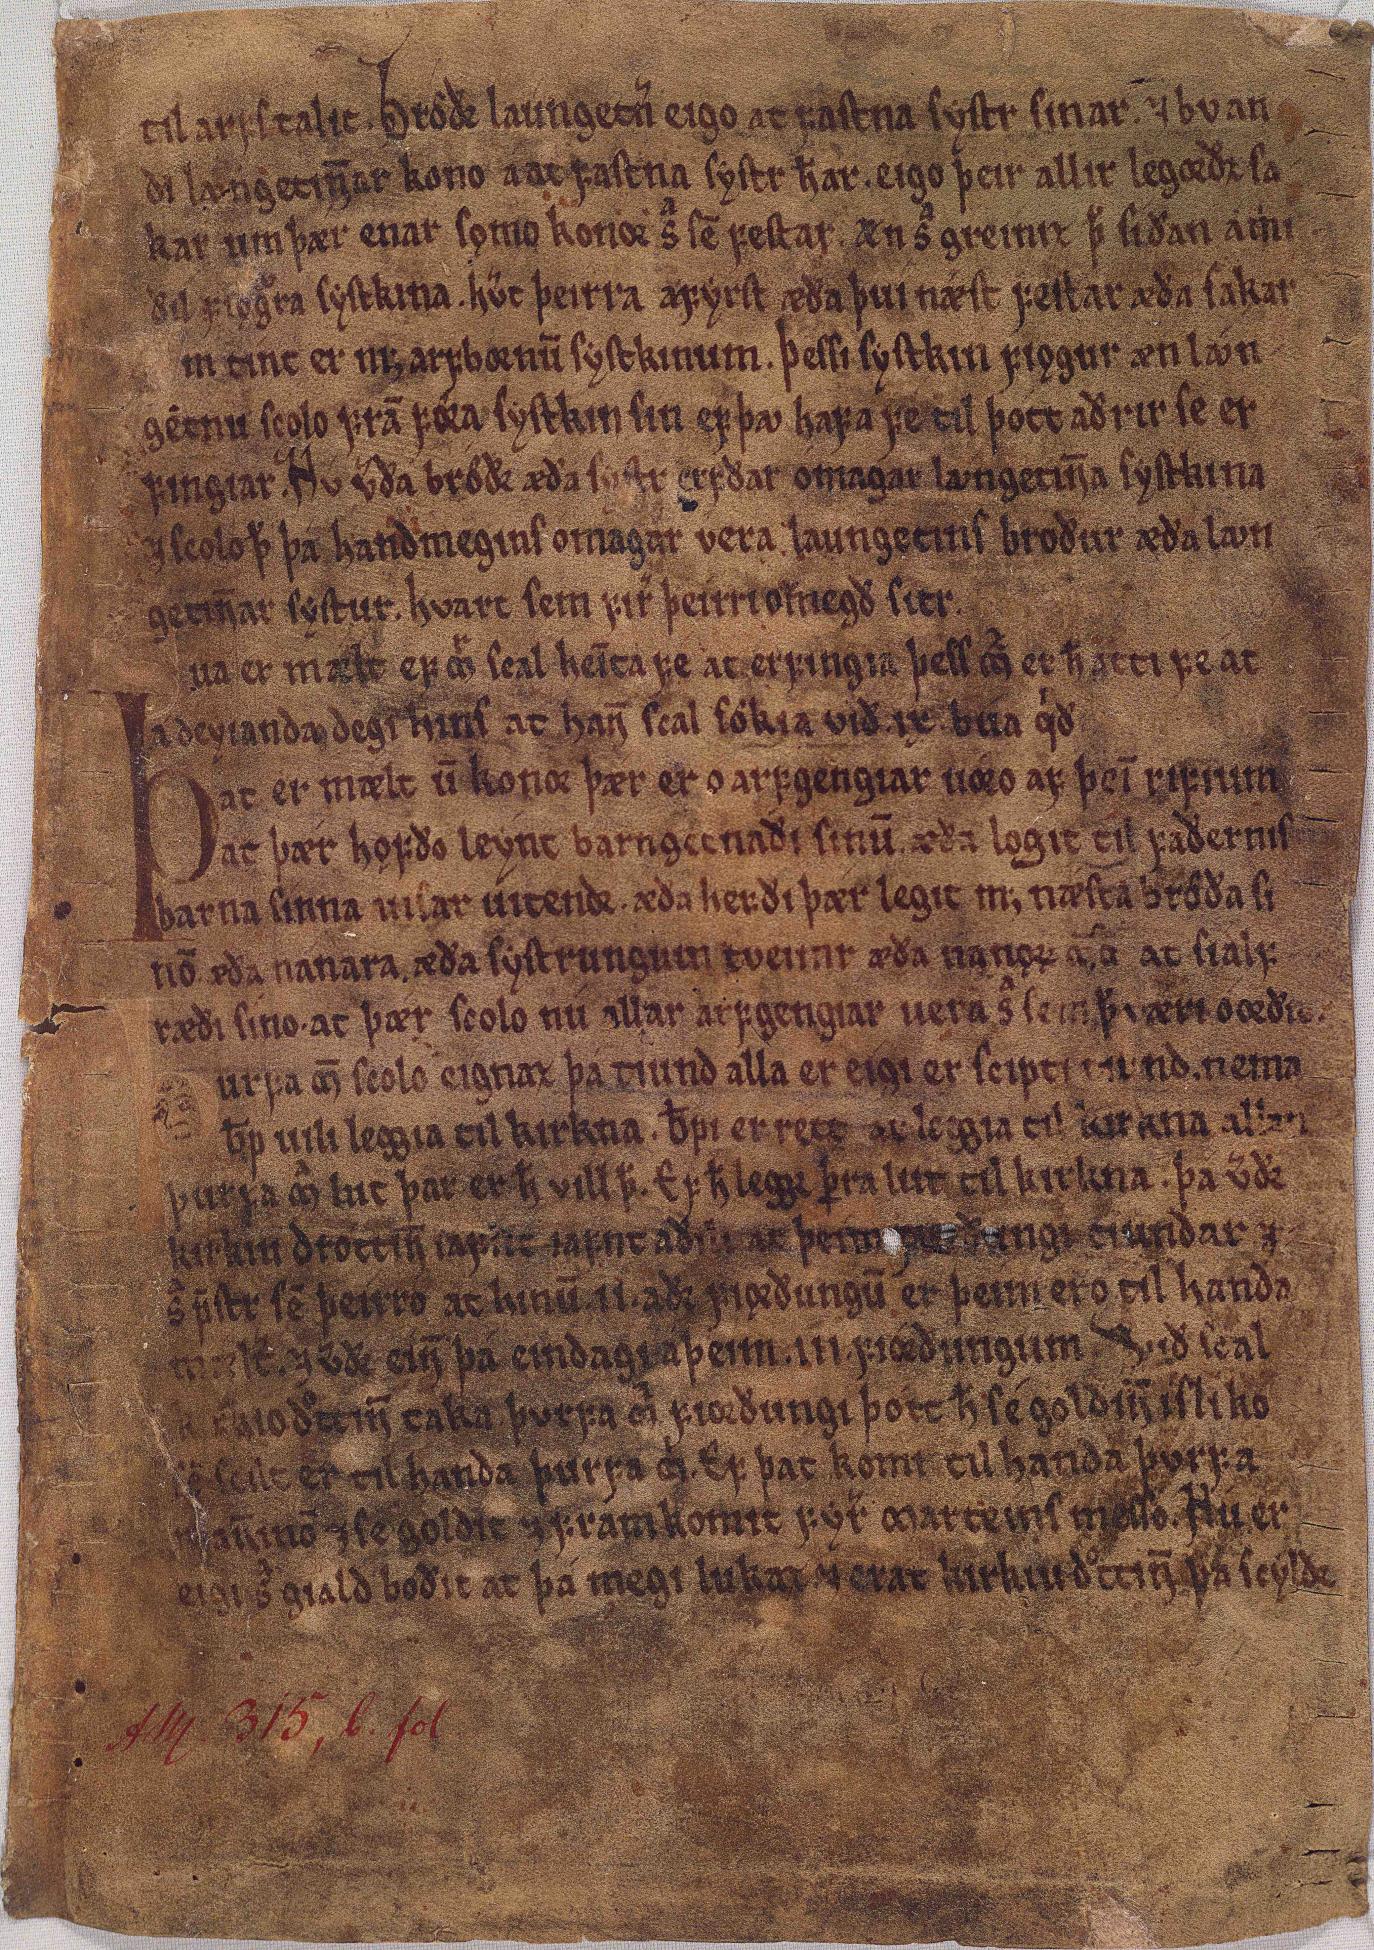 til arfs talit. brǿðꝛ laungetn̄ eigo at fastna systr sinar. ⁊ bv an
di langetin̄ar kono a at fastna systr h̄ar. eigo þeir allir legoꝛðꝛ sa
kar um þær enar sǫmo konoꝛ sͣ sē festar. æn sͣ greiniz þ̄ siðan a mi
ðil fiogᷣra systkina. hv̄t þeirra a fyrst æða þui næst festar æða sakar
m tint er mꝫ arfboꝛnū systkinum. þessi systkin fiǫgur æn laun
gētnu scolo frā fǿra systkin sin ef þꜹ hafa fe til þott aðrir se er
fingiar. Nv v̄ða brǿðꝛ æða systr erfðar omagar langetin̄a systkina
⁊ scolo þ̄ þa handmegins omagar vera laungetins broður æða laun
getin̄ar systur. hvart sem fir̄ þeirri omegð sitr.
ua er mælt ef m̄ scal heīta fe at erfingia þess m̄ er h̄ atti fe at
a deyianda degi hins at han̄ scal sǿkia við .ix. bua qͥð
Þat er mælt ū konoꝛ þær er o arfgengiar uoꝛo af þeī rifium
at þær hǫfðo leynt barngetnaði sinū. æða logit til faðernis
barna sinna uisar uitendꝛ. æða hefði þær legit mꝫ næsta brǿðꝛa si
nō æða nanara. æða systrungum tveimr æða nanoꝛ at sialf
ræði sino. at þær scolo nu allar arfgengiar uera sͣ sem þ̄ væri ooꝛðit.
urfa m̄ scolo eignaz þa tiund alla er eigi er scipti tiund. nema
b̄p uili leggia til kirkna. b̄pi er rett at leggia til kirkna allan
þurfa m̄ lut þar er h̄ vill þ̄. Ef h̄ leggꝛ þr̄a lut til kirkna. þa v̄ðꝛ
kirkiu drottin̄ iafnt at þeim fioꝛðungi tiundar ⁊
sͣ p̄str sē þeirro at hinū .ii. aðꝛ fioꝛðungū er þeim ero til handa
mælt. ⁊ v̄ðꝛ ein̄ þa eindagi a þeim .iii. fioꝛðungum. Við scal
kirkio dͦttin̄ taka þurfa m̄ fioꝛðungi þott h̄ se goldin̄ i sliko
sē scilt er til handa þurfa m̄. Ef þat komi til handa þvrfa
man̄inō ⁊ se goldit ⁊ fram komit fyr̄ marteins messo. Nu er
eigi sͣ giald boðit at þa megi lukaz. ⁊ erat kirkiu dͦttin̄ þa scyldꝛ
AM. 315, b. fol